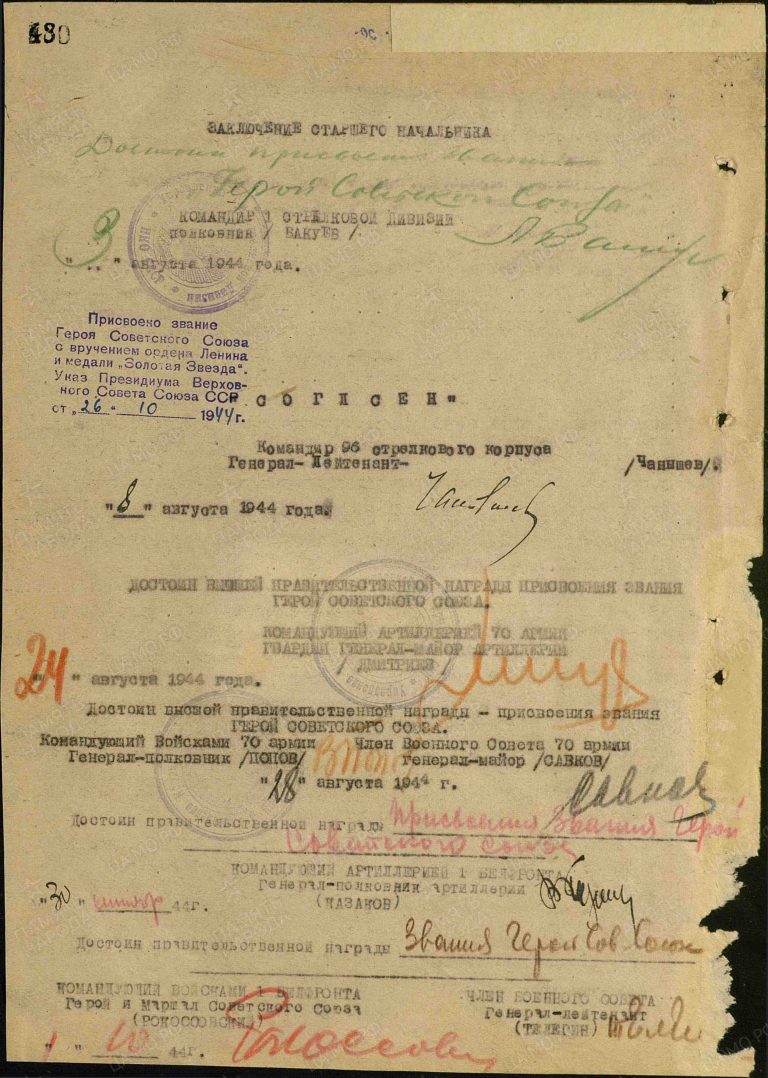 480
ЗАКЛЮЧЕНИЕ СТАРШЕГО НАЧАЛЬНИКА
Достоин присвоения звания
"Герой Советского Союза"
КОМАНДИР 1 СТРЕЛКОВОЙ ДИВИЗИИ
полковник / БАКУЕВ /.
3
" .. " августа 1944 года.
Присвоено звание
Героя Советского Союза
с вручением ордена Ленина
и медали „Золотая Звезда".
Указ Президиума Верхов-
ного Совета Союза ССР
от „26" 10 1944 г.
СОГЛСЕН"
Командир 96 стрелкового корпуса
Генерал-Лейтенант- /Чанышев/.
"8" августа 1944 года.
ДОСТОИН ВЫСШЕЙ ПРАВИТЕЛЬСТВЕННОЙ НАГРАДЫ ПРИСВОЕНИЯ ЗВАНИЯ
ГЕРОЙ СОВЕТСКОГО СОЮЗА.
КОМАНДУЮЩИЙ АРТИЛЛЕРИЕЙ 70 АРМИИ
ГВАРДИИ ГЕНЕРАЛ-МАЙОР АРТИЛЛЕРИИ
24 " августа 1944 года.
Достоин высшей правительственной награды - присвоения звания
ГЕРОЙ СОВЕТСКОГО СОЮЗА.
Командующий Войсками 70 армии Член Военного Совета 70 армии
Генерал-полковник /ПОПОВ/ генерал-майор /САВКОВ/
"28" августа 1944 г.
Савков
Достоин правительственной награды Присвоения Звания Герой
Советского Союза
КОМАНДУЮЩИЙ АРТИЛЛЕРИЕЙ 1 БЕЛФРОНТА
Генерал-полковник артиллерии
(КАЗАКОВ)
"30" 44г.
Достоин правительственной награды Звания Героя Сов Союза
КОМАНДУЮЩИЙ ВОЙСКАМИ 1 БЕЛФРОНТА ЧЛЕН ВОЕННОГО СОВЕТА
Герой и Маршал Советского Союза Генерал-лейтенант
(РОКОССОВСКИЙ) (ТЕЛЕГИН)
" 1 " 10 44г.